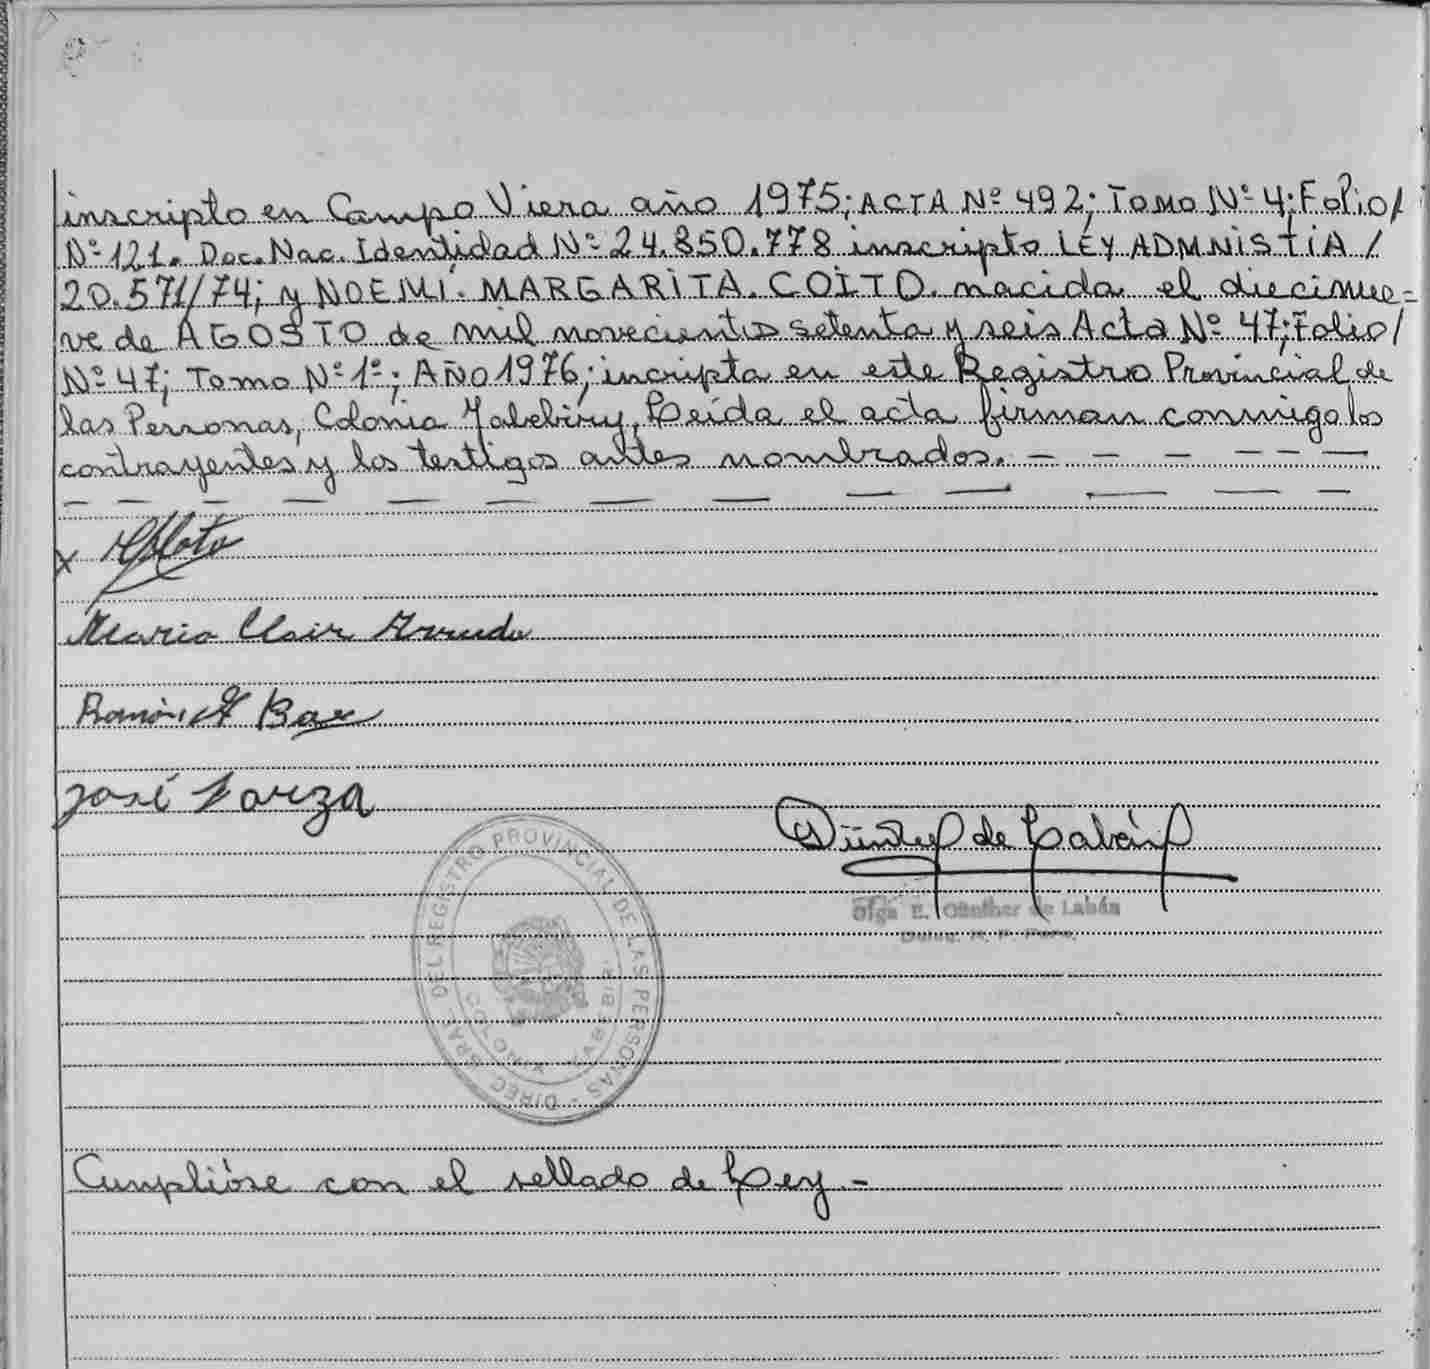 inscripto en Campo Viera año 1975; ACTA Nº 492; TOMO Nº 4; FOLIO/
Nº 121. Doc. Nac. Identidad Nº 24.850.778 inscripto LEY ADMNISTIA /
20.571/74; y NOEMI. MARGARITA. COITO. nacida el diecinue=
ve de AGOSTO de mil novecientos setenta y seis Acta Nº 47; Folio/
Nº 47; Tomo Nº 1º; AÑO 1976; incripta en este Registro Provincial de
las Personas, Colonia Yabebiry, Leída el acta firman conmigo los
contrayentes y los testigos antes nombrados. — — — — — —
— — — — — — — — — — — — —
x
Maria Clair Arruda
Ramón
José Garza
Günther de Labán
Olga E. Günther de Labán
Deleg. R. P. Pers.
DIREC. GRAL. DEL REGISTRO PROVINCIAL DE LAS PERSONAS -
COLONIA YABEBIRI
Cumplióse con el sellado de Ley. -